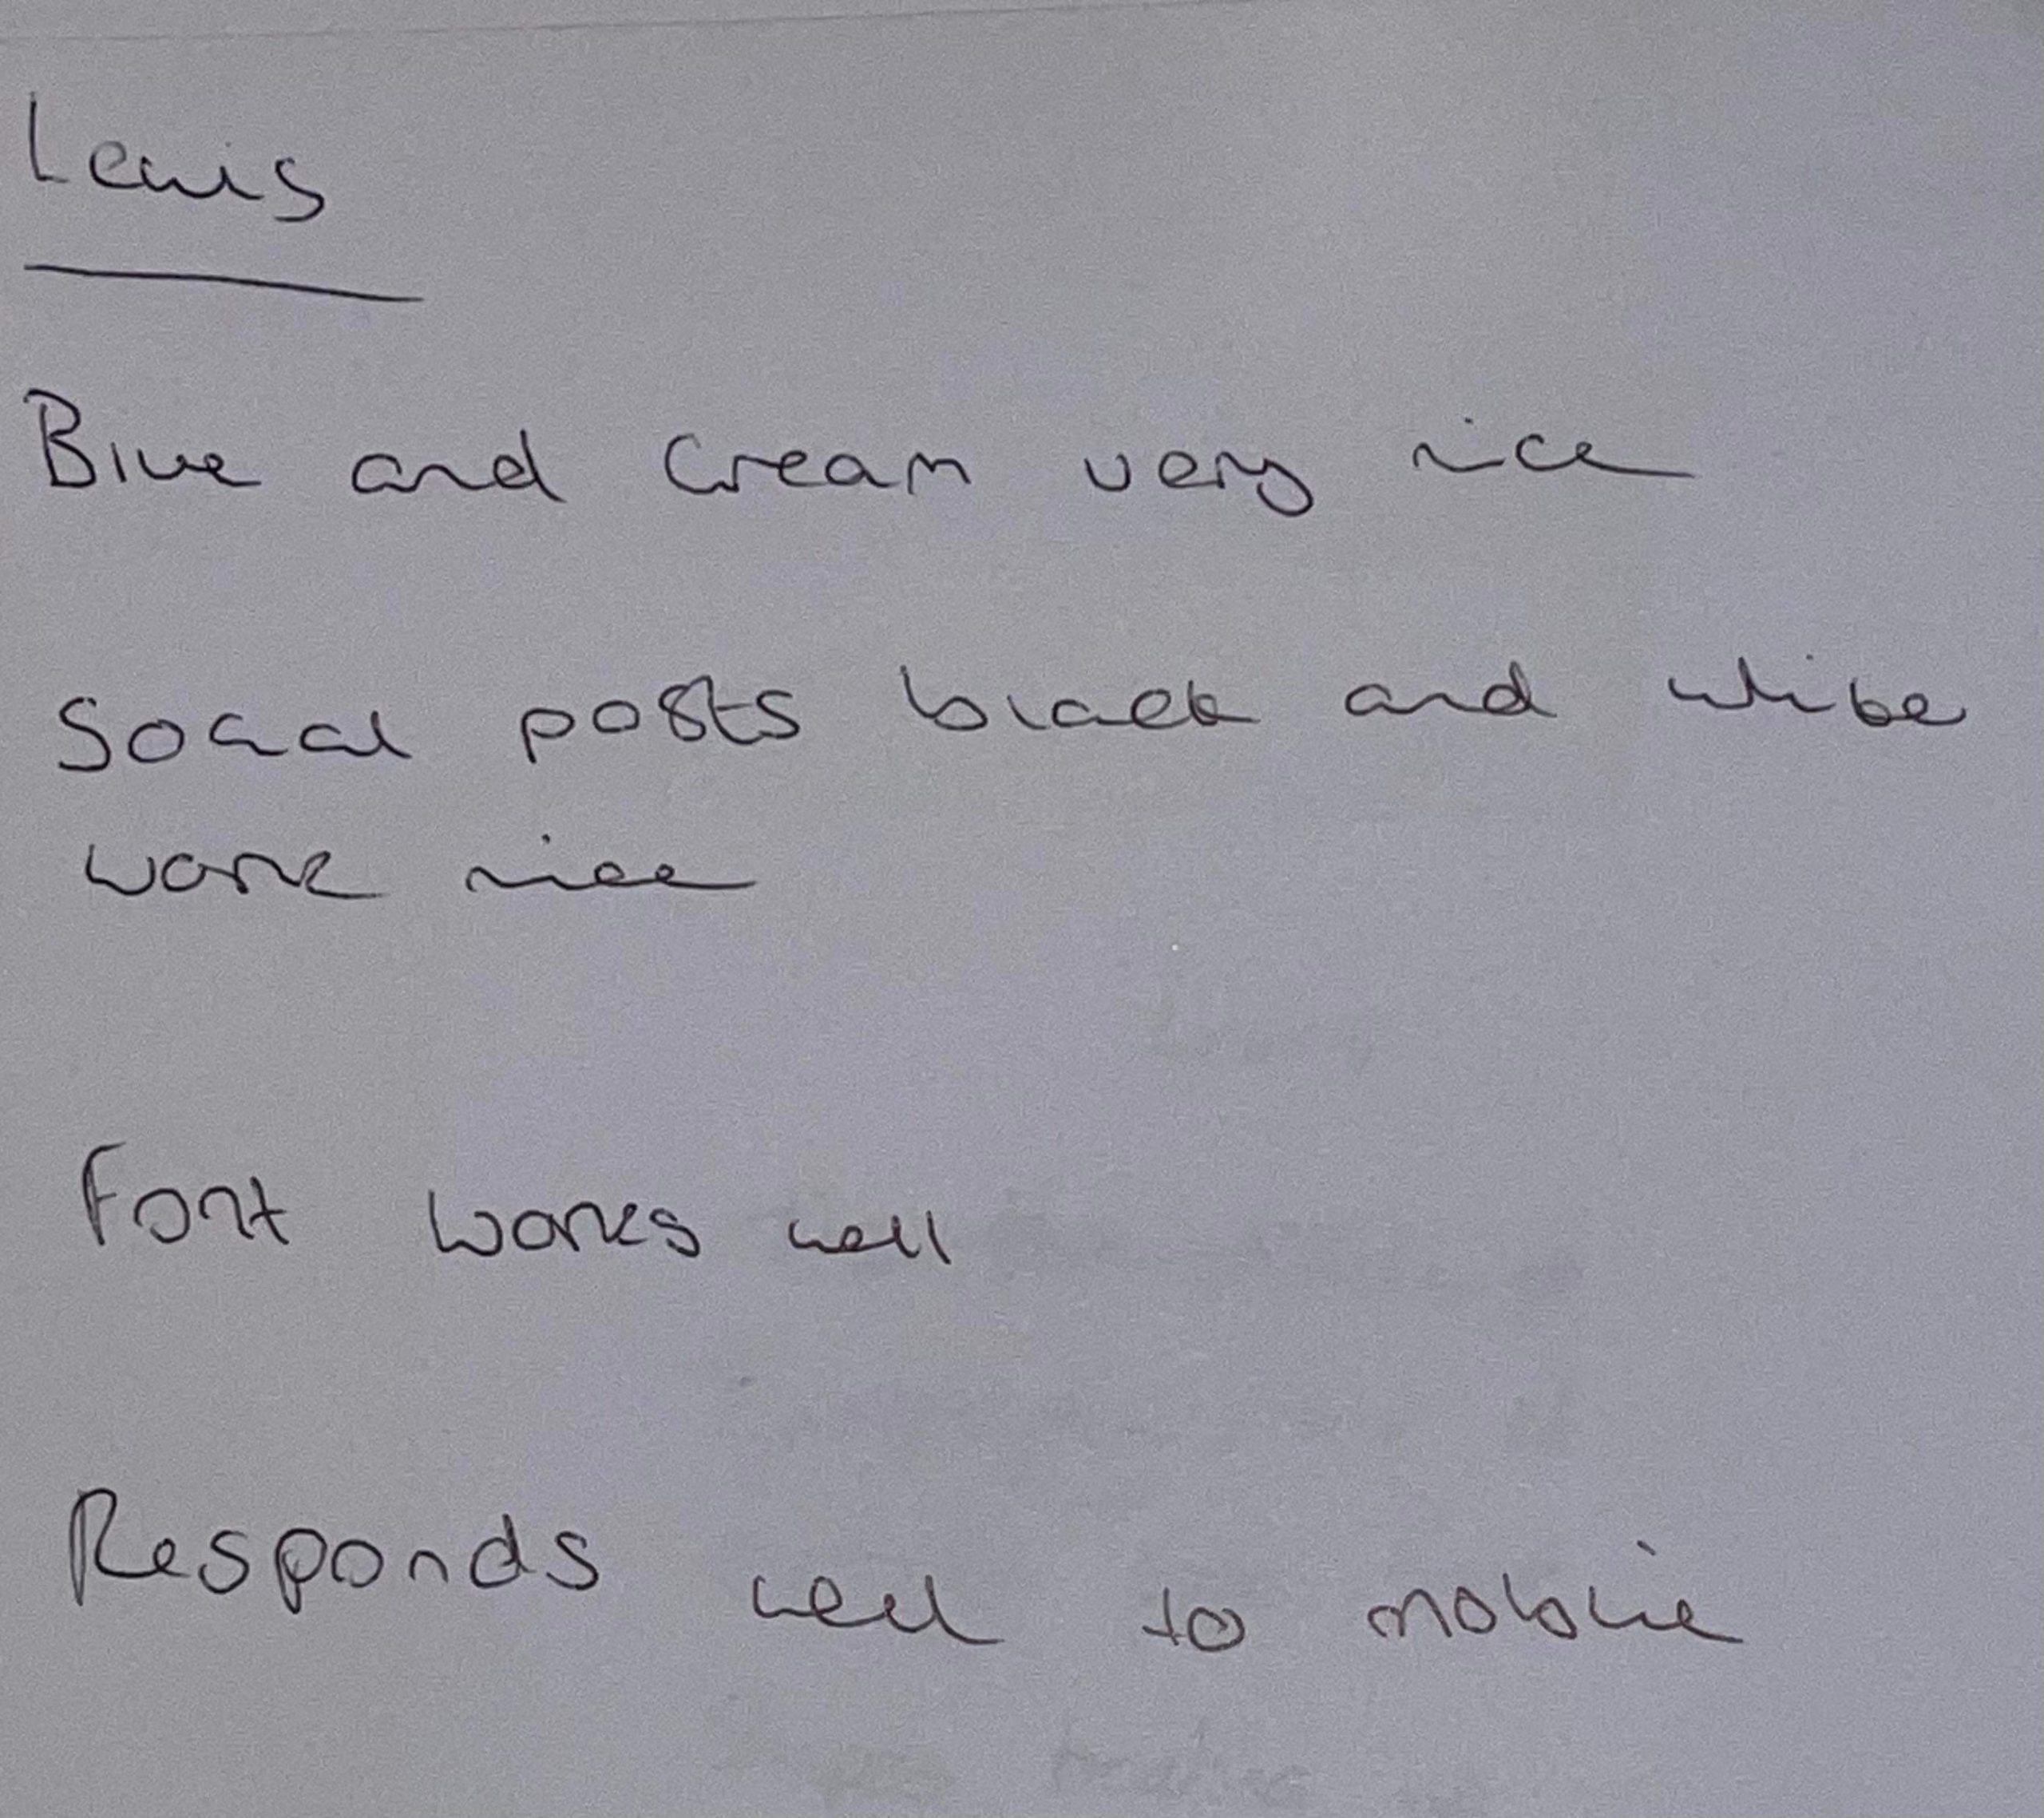 Lewis
Blue and Cream very nice
Social posts black and white
work nice
Font works well
Responds well to mobile